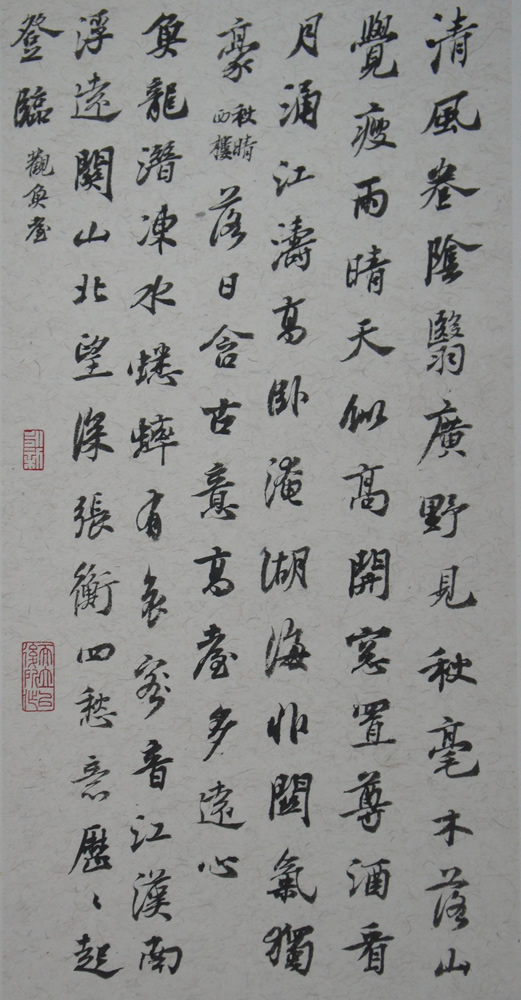 清風卷陰翳廣野見秋毫木落山
覺瘦雨晴天似高開窓置尊酒看
月涌江濤高卧淹湖海非關氣獨
豪 秋晴西樓 落日含古意高臺多遠心
魚龍潛凍水蟋蟀有哀音江漢南
浮遠關山北望深張衡四愁意歷〻起
登臨 觀魚臺